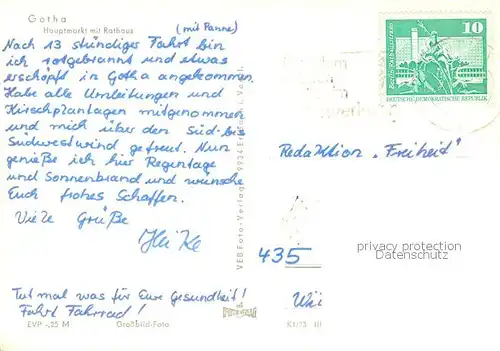 Gotha
Hauptmarkt mit Rathaus
(mit Panne)
Nach 13 stündiger Fahrt bin
ich rotgebrannt und etwas
erschöpft in Gotha angekommen.
Habe alle Umleitungen und
Kirschplantagen mitgenommen
und mich über den Süd- bis
Südwestwind gefreut. Nun
genieße ich hier Regentage
und Sonnenbrand und wünsche
Euch frohes Schaffen.
Viele Grüße
Heike
Tut mal was für Eure Gesundheit!
Fahrt Fahrrad!
EVP -,25 M
Großbild-Foto
VEB Foto-Verlag 9934
10
DEUTSCHE DEMOKRATISCHE REPUBLIK
Redaktion „Freiheit“
435
privacy protection
K1/73